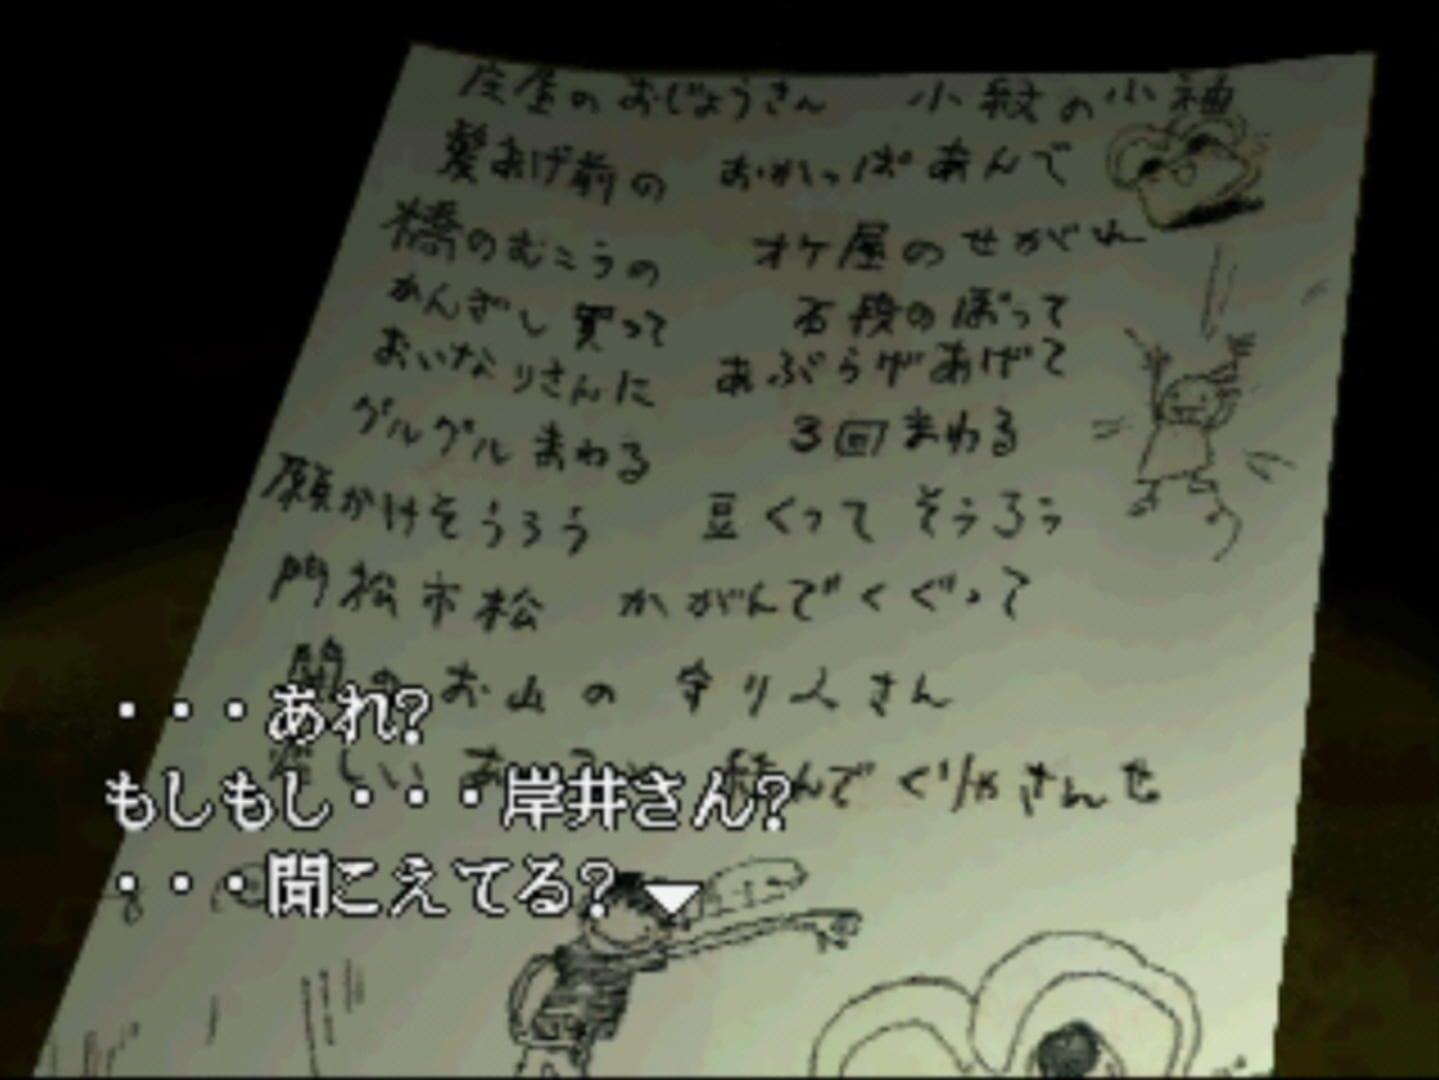 庄屋のおじょうさん　小紋の小袖
髪あげ前の　おかっぱあんで
橋のむこうの　オケ屋のせがれ
かんざし買って　石段のぼって
おいなりさんに　あぶらげあげて
グルグルまわる　3回まわる
願かけそうろう　豆くってそうろう
門松市松　かがんでくぐって
お山の　守り人さん
しい　結んでくりゃさんせ
・・・あれ?
もしもし・・・岸井さん?
・・・聞こえてる?